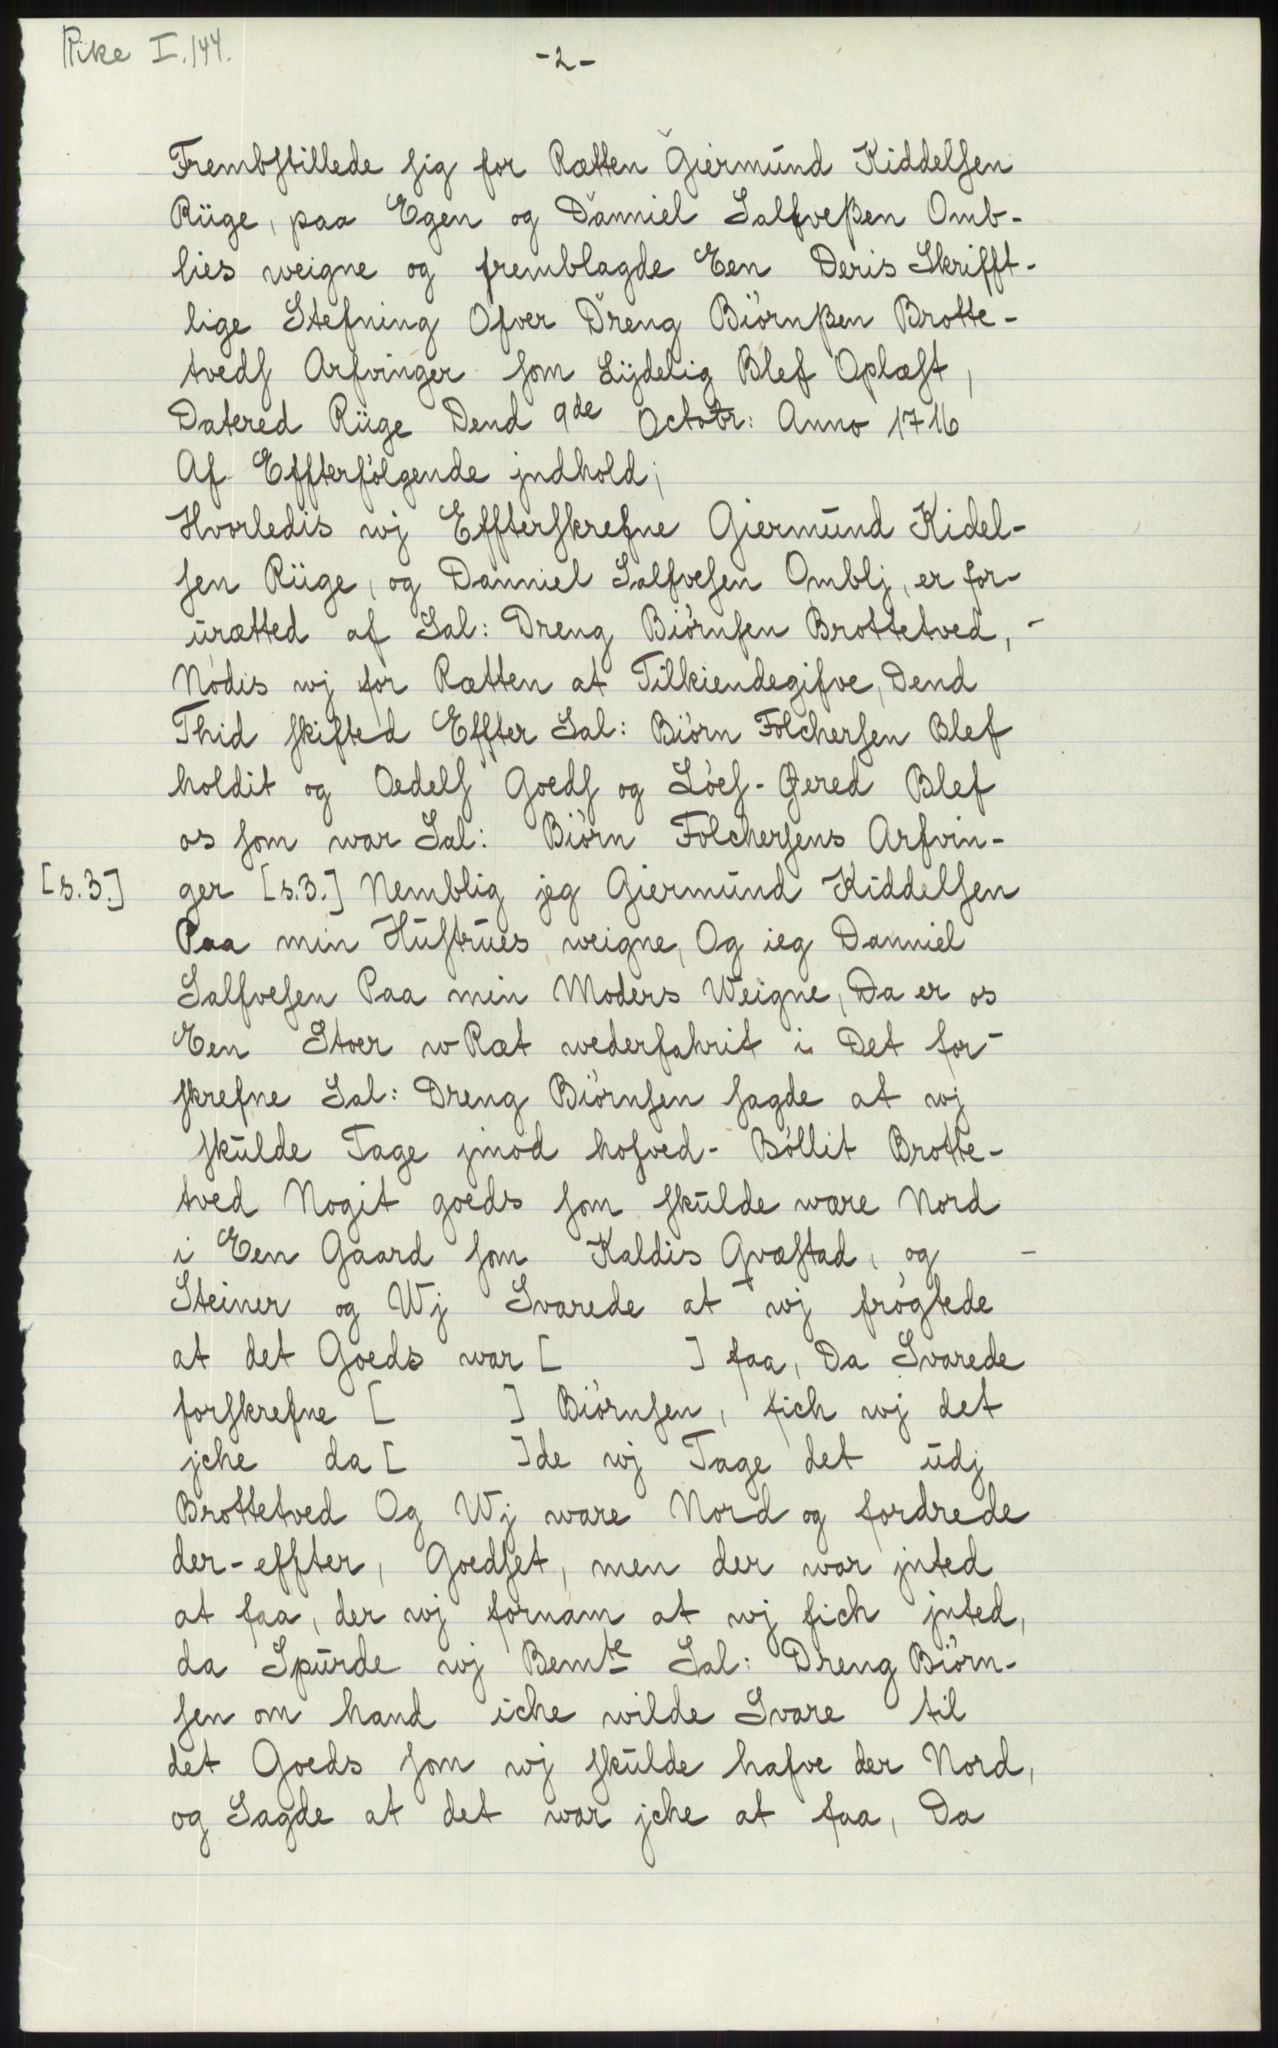 Rike I.144.
-2-
Frembstillede sig for Rætten Giermund Kiddelsen
Rüge, paa Egen og Danniel Salfveßen Omb-
lies weigne og fremblagde Een Deris Skrifft-
lige Stefning Ofver Dreng Biörnßen Brotte-
tveds Arfvinger som Lÿdelig Blef Oplæst,
Datered Rüge Dend 9de Octobr: Anno 1716
Af Effterfölgende jndhold;
Hvorledis wj Effterskrefne Giermund Kidel-
sen Rüge, og Danniel Salfvesen Omblj, er for-
urætted af Sal: Dreng Biörnsen Brottetved, -
Nödis wj for Rætten at Tilkiendegifve, Dend
Thid skifted Effter Sal: Biörn Folchersen Blef
holdit og Oedels Goeds og Löes-Øered Blef
os som war Sal: Biörn Folchersens Arfvin-
[s.3.] ger [s.3.] Nemblig jeg Giermund Kiddelsen
Paa min Hustrues weigne, Og ieg Danniel
Salfvesen Paa min Moders Weigne, Da er os
Een Stoer w Ræt wederfahrit i Det for-
skrefne Sal: Dreng Biörnsen sagde at wj
skulde Tage jmod hofved-Böllit Brotte-
tved Nogit goeds som skulde wære Nord
i Een Gaard som Kaldis Qvæstad, og -
Steiner og Wj Svarede at wj frögtede
at det Goeds war [ ] faa, Da Svarede
forskrefne [ ] Biörnsen, fich wj det
jche da [ ]de wj Tage det udj
Brottetved Og Wj ware Nord og fordrede
der-effter, Goedset, men der war jnted
at faa, der wj fornam at wj fich jnted,
da Spurde wj Bemte Sal: Dreng Biörn-
sen om hand iche wilde Svare til
det Goeds som wj skulde hafve der Nord,
og Sagde at det war jche at faa, Da